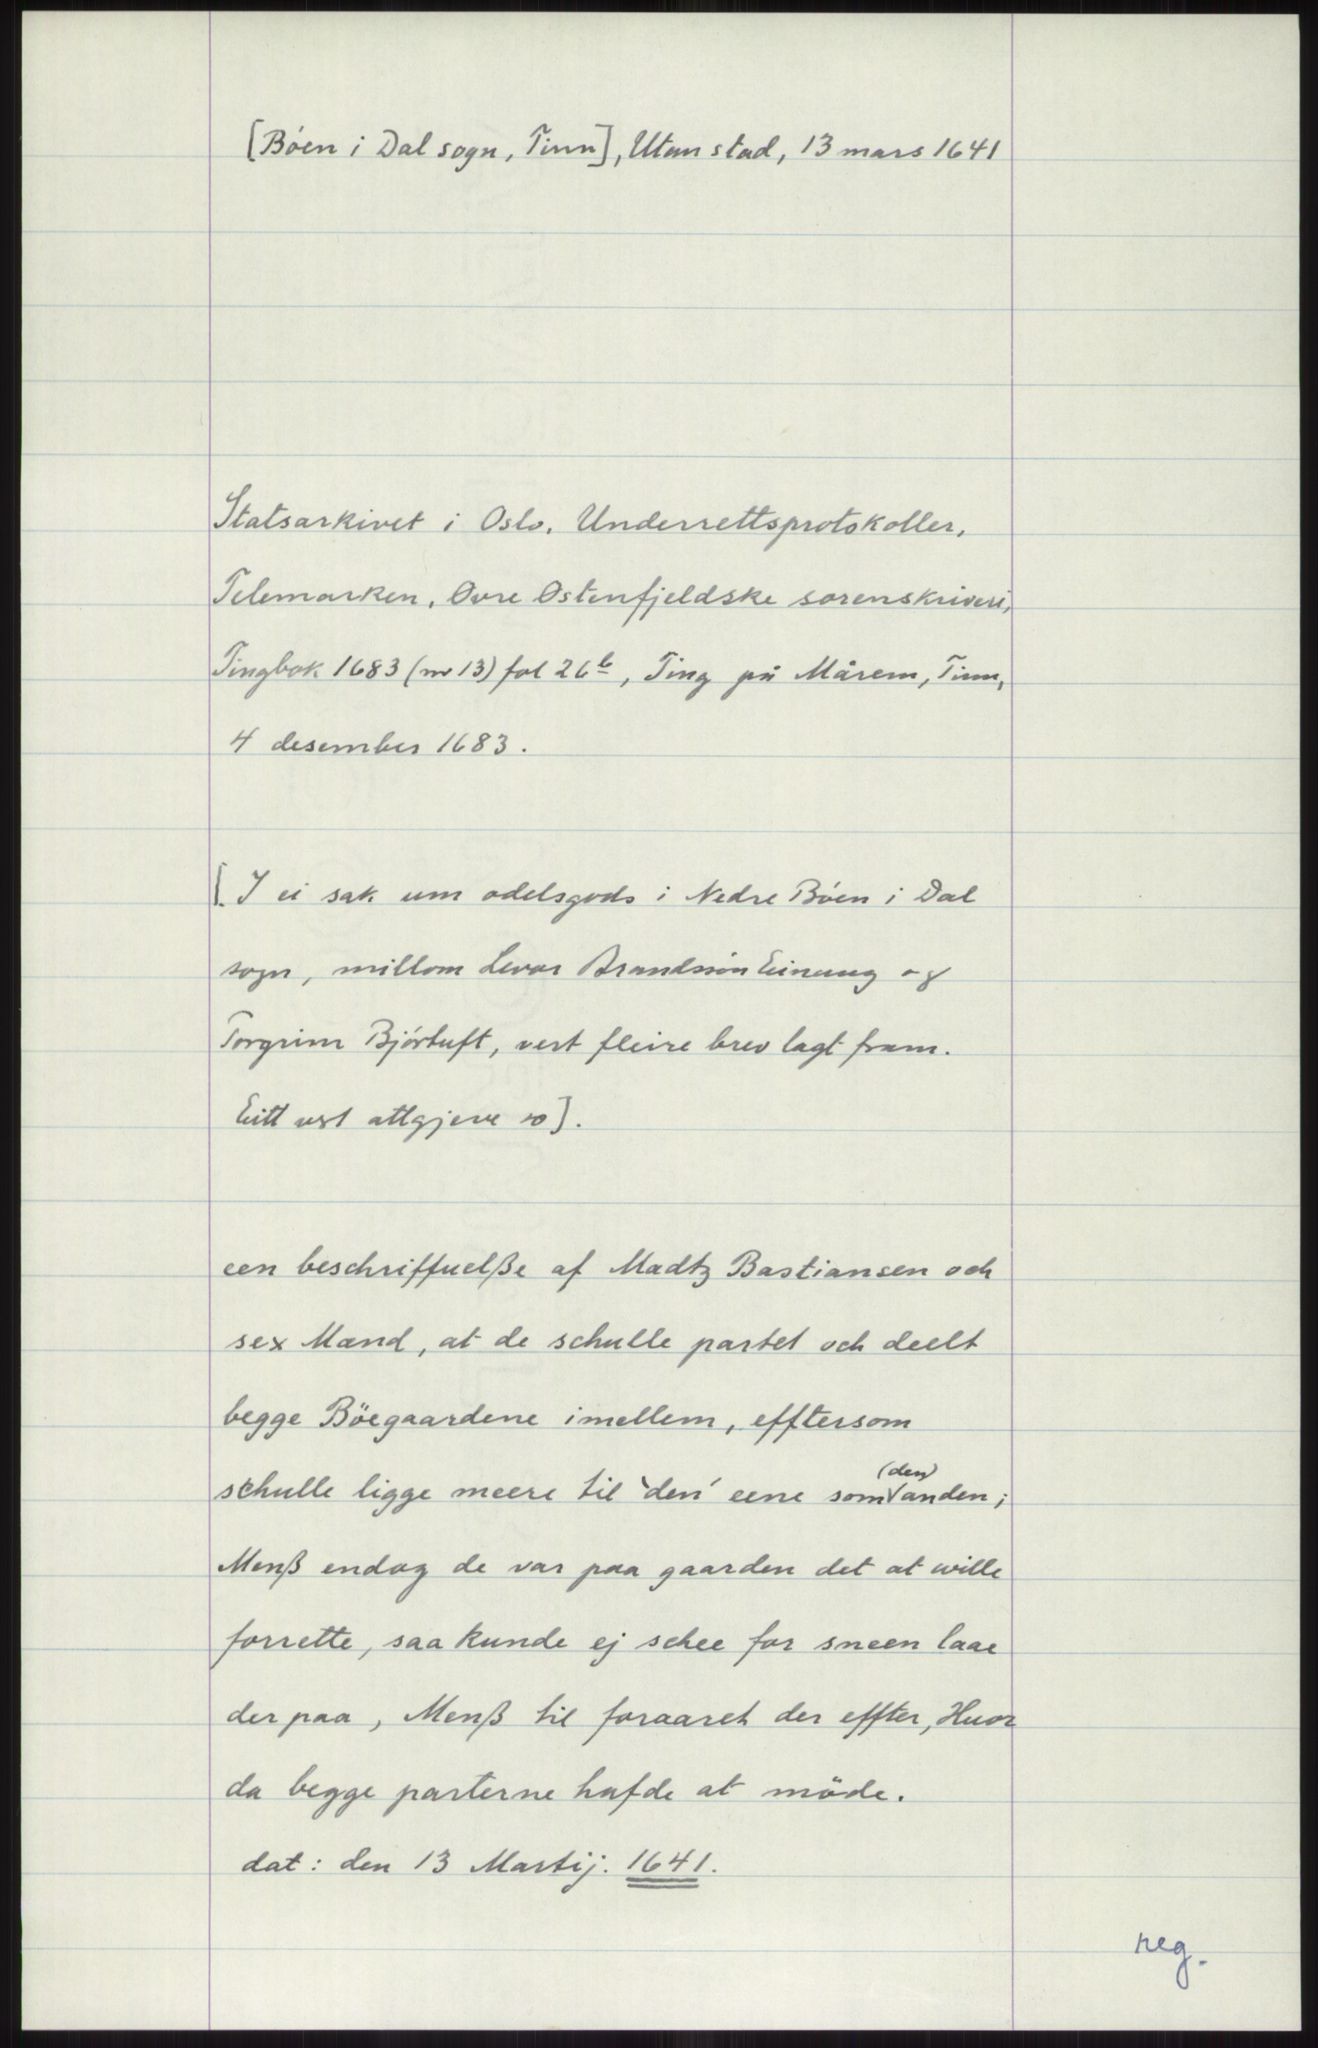 [Bóen i Dal sogn, Tinn], Utan stad, 13 mars 1641
Statsarkivet i Oslo. Underrettsprotokoller,
Telemarken. Øvre Østenfjeldske sorenskriveri,
Tingbok 1683 (nr 13) fol 26b, Ting på Mårem, Tinn,
4 desember 1683.
[I ei sak um odelsgods i Nedre Bóen i Dal
sogn, millom Levor Brandssón Einung og
Torgrim Bjórtuft, vert fleire brev lagt fram.
Eitt vert attgjeve so].
een beschriffuelße af Madtz Bastiansen och
sex Mænd, at de schulle partet och deelt
begge Böegaardene imellem, efftersom
(den)
schulle ligge meere til `den´ eene som √ anden;
Menß endog de var paa gaarden det at wille
forrette, saa kunde ej schee for sneen laae
der paa, Menß til foraaret der effter, Huor
da begge parterne hafde at möde.
dat: den 13 Martij. 1641.
reg.